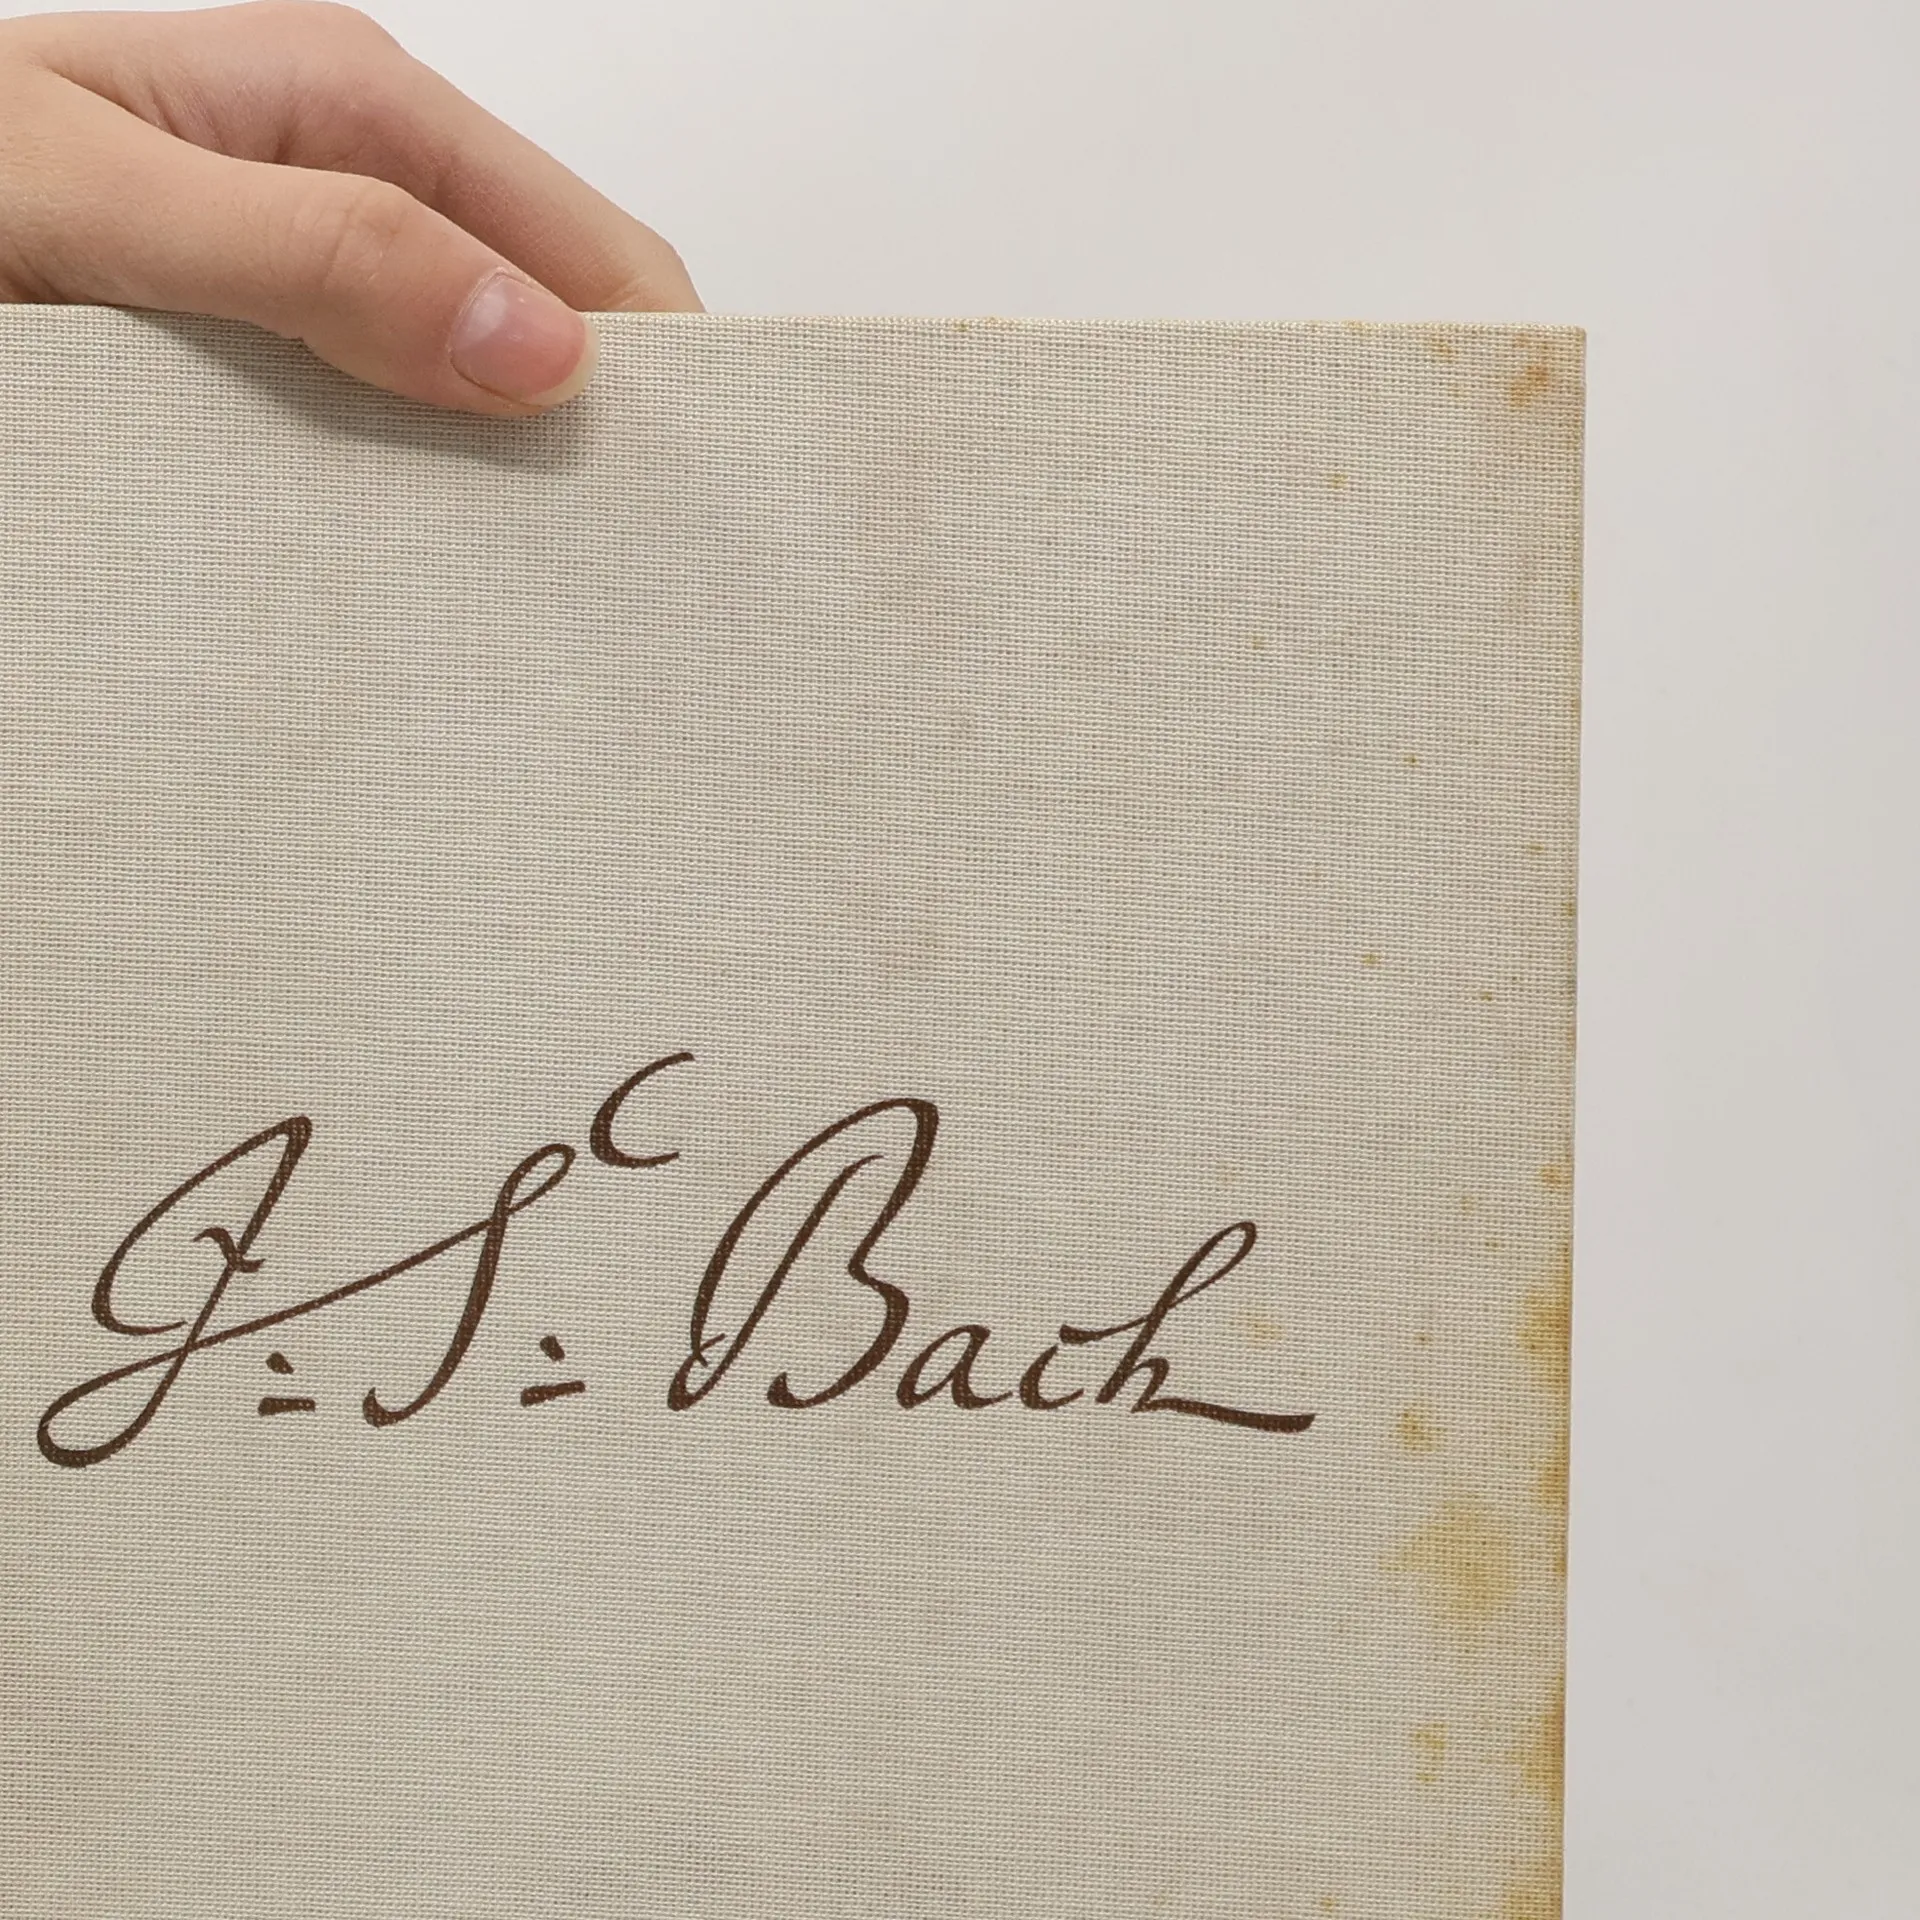 J. S. Bach